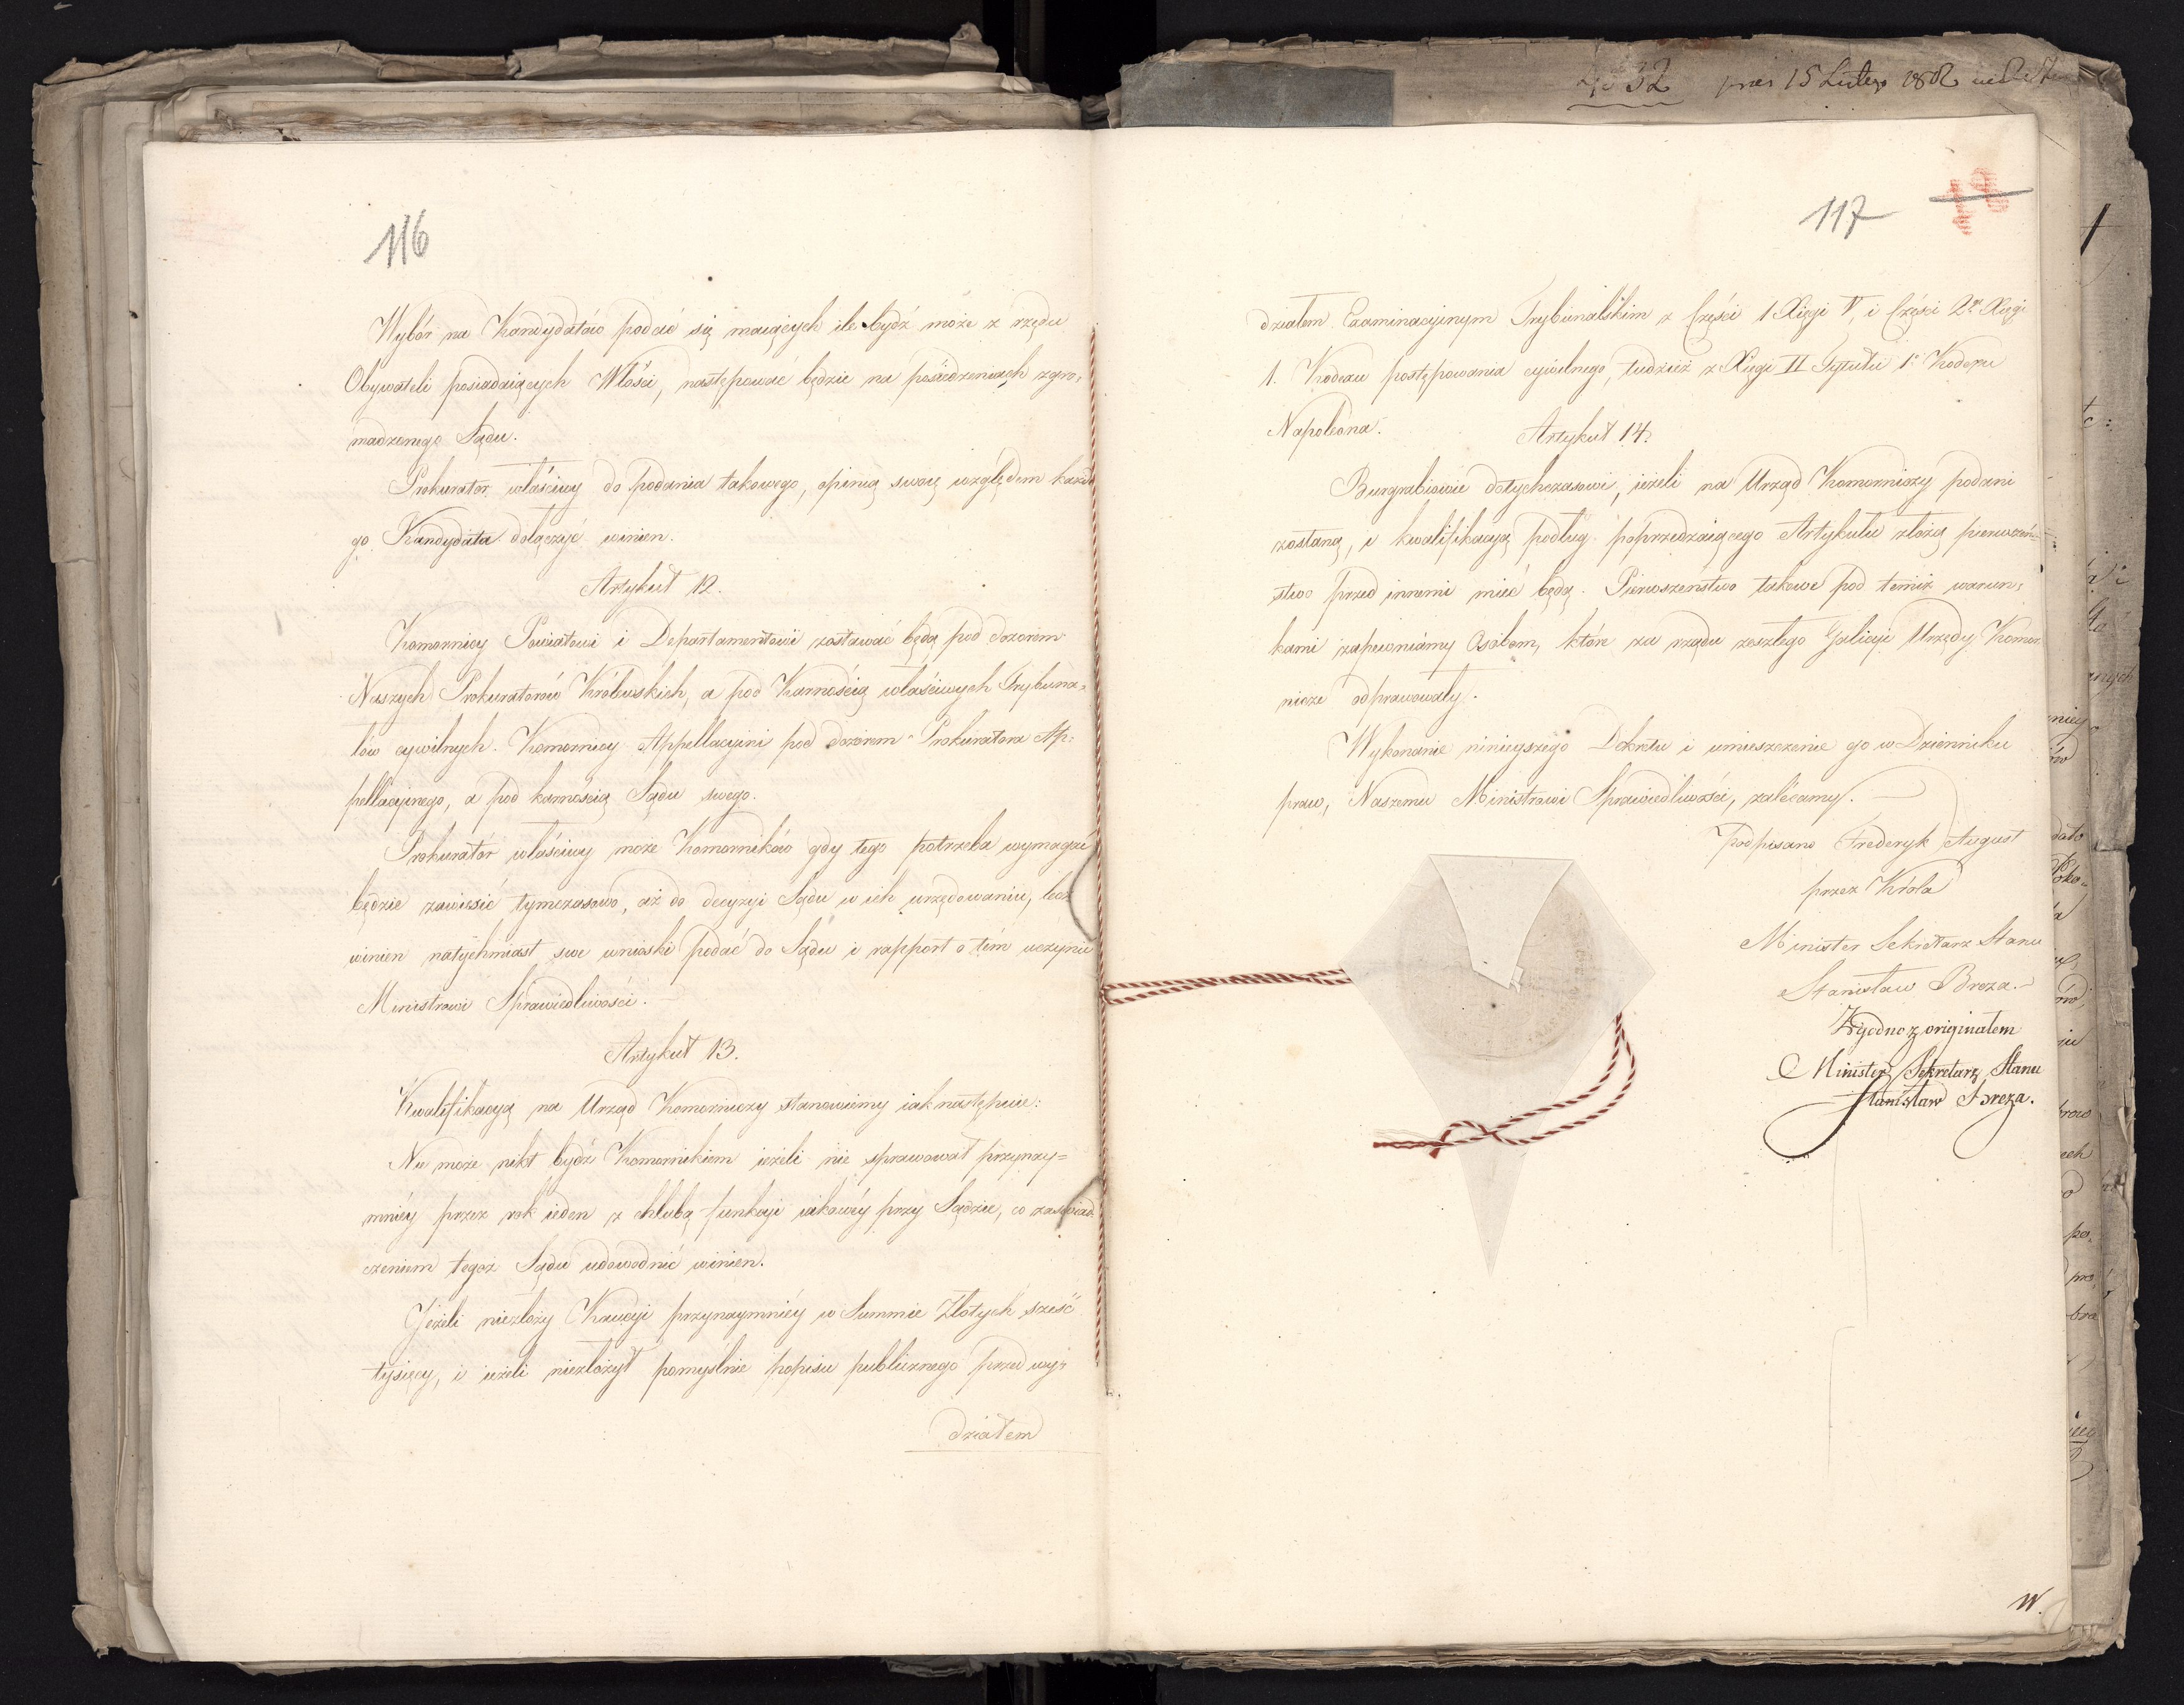 116
Wybór na Kandydatów podać się maiących ile bydź może z rzędu
Obywateli posiadaiących Włości, następować będzie na posiedzeniach zgro-
madzonego Sądu.
Prokurator właściwy do podania takowego, opinią swoię względem każde
go Kandydata dołączyć winien.
Artykuł 12.
Komornicy Powiatowi i Departamentowi zostawać będą pod dozorem
Naszych Prokuratorów Królewskich, a pod Karnością właściwych Trybuna-
łów cywilnych. Komornicy Appellacyini pod dozorem Prokuratora Ap-
pellacyinego, a pod karnością Sądu swego.
Prokurator właściwy może Komorników gdy tego potrzeba wymagać
będzie zawiesić tymczasowo, aż do decyzyi Sądu w ich urzędowaniu, lecz
winien natychmiast swe wnioski podać do Sądu i rapport o tém uczynić
Ministrowi Sprawiedliwości.
Artykuł 13.
Kwalifikacyą na Urząd Komorniczy stanowiemy iak następuie:
Nie może nikt bydź Komornikiem ieżeli nie sprawował przynay=
mniéy przez rok ieden z chlubą funkcyi iakowéy przy Sądzie, co zaświad-
czeniem tegoż Sądu udowodnić winien.
Jeżeli niezłoży Kaucyi przynaymniéy w Summie Złotych sześć
tysięcy, i ieżeli niezłożył pomyślnie popisu publicznego przed wy-
działem
No 32 prez 15 Lutego
117
działem Examinacyinym Trybunalskim z Części 1 Xięgi V, i Części 2éy Xięgi
1. Kodexu postępowania cywilnego, tudzież z Xięgi II Tytułu 1o Kodexu
Napoleona.
Artykuł 14.
Burgrabiowie dotychczasowi, ieżeli na Urząd Komorniczy podani
zostaną, i kwalifikacyą podług poprzedzaiącego Artykułu złożą pierwszeń=
stwo przed innemi mieć będą. Pierwszeństwo takowe pod temiż warun-
kami zapewniámy Osobom, które za rządu zeszłego Galicyi Urzędy Komor-
nicze odprawowały.
Wykonanie ninieyszego Dekretu i umieszczenie go w Dzienniku
praw, Naszemu Ministrowi Sprawiedliwości, zalécamy.
Podpisano Frederyk August
przez Króla
Minister Sekretarz Stanu
Stanisław Breza.
Zgodno z originałem
Minister Sekretarz Stanu
Stanisław Breza.
W.